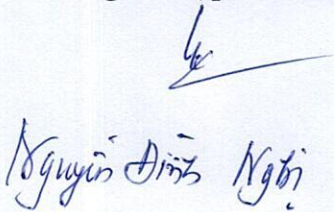 Nguyễn Đình Nghị